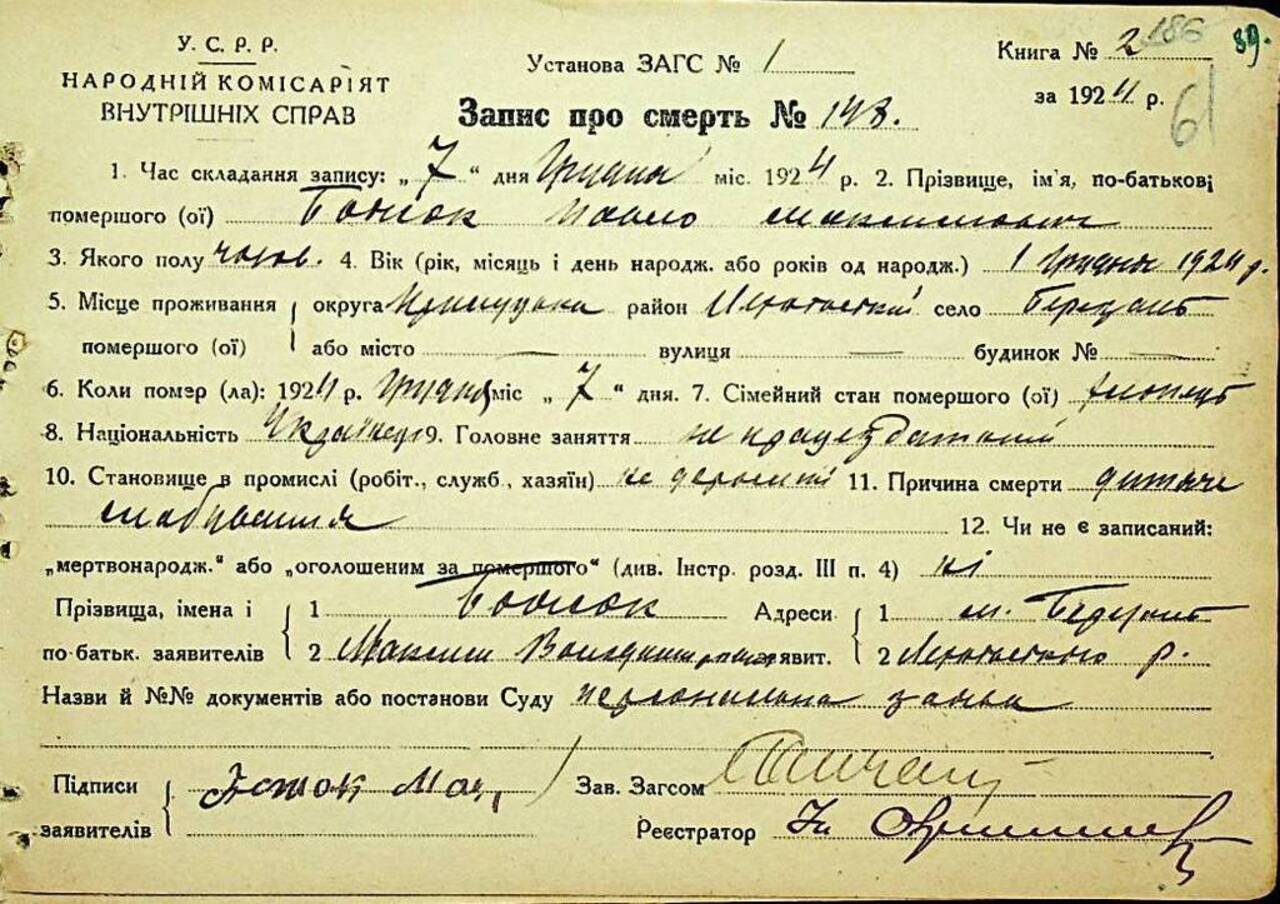 У. С. Р. Р.
НАРОДНІЙ КОМІСАРІЯТ
ВНУТРІШНІХ СПРАВ
Установа ЗАГС № 1
Книга № 2 186 89.
за 1924 р. 61
Запис про смерть № 148.
1. Час складання запису: „ 7 “ дня Грудня міс. 1924 р. 2. Прізвище, ім'я, по-батькові
помершого (ої) Павло Максимович
3. Якого полу чолов. 4. Вік (рік, місяць і день народж. або років од народж.) 1 Грудня 1924 р.
5. Місце проживання округа Прилуцька район село
помершого (ої) або місто — вулиця — будинок № —
6. Коли помер (ла): 1924 р. Грудня міс „ 7 “ дня. 7. Сімейний стан помершого (ої) хлопець
8. Національність Українець 9. Головне заняття не працездатний
10. Становище в промислі (робіт., служб., хазяїн) не 11. Причина смерти дитяче
слабування
12. Чи не є записаний:
„мертвонародж.“ або „оголошеним за помершого“ (див. Інстр. розд. III п. 4) ні
Прізвища, імена і 1 Адреси 1
по батьк. заявителів 2 Максим заявит. 2 р.
Назви й №№ документів або постанови Суду персональна заява
Підписи Мак, Зав. Загсом
заявителів Реєстратор